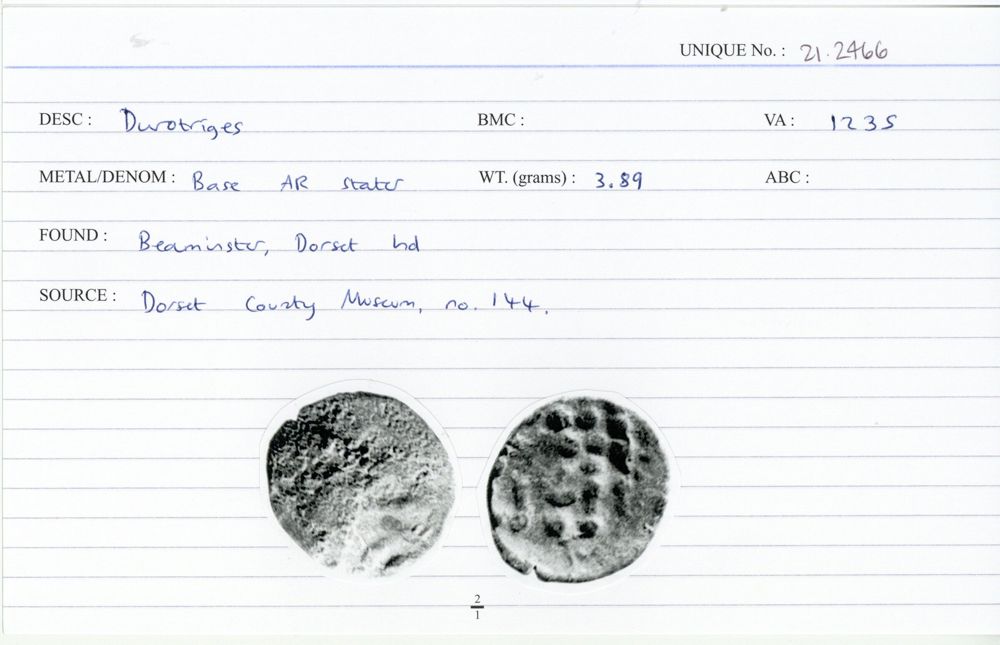 UNIQUE No. : 21.2466
DESC : Durotriges BMC : VA : 1235
METAL/DENOM : Base AR stater WT. (grams) : 3.89 ABC :
FOUND : Beaminster, Dorset hd
SOURCE : Dorset County Museum, no. 144.
2
1